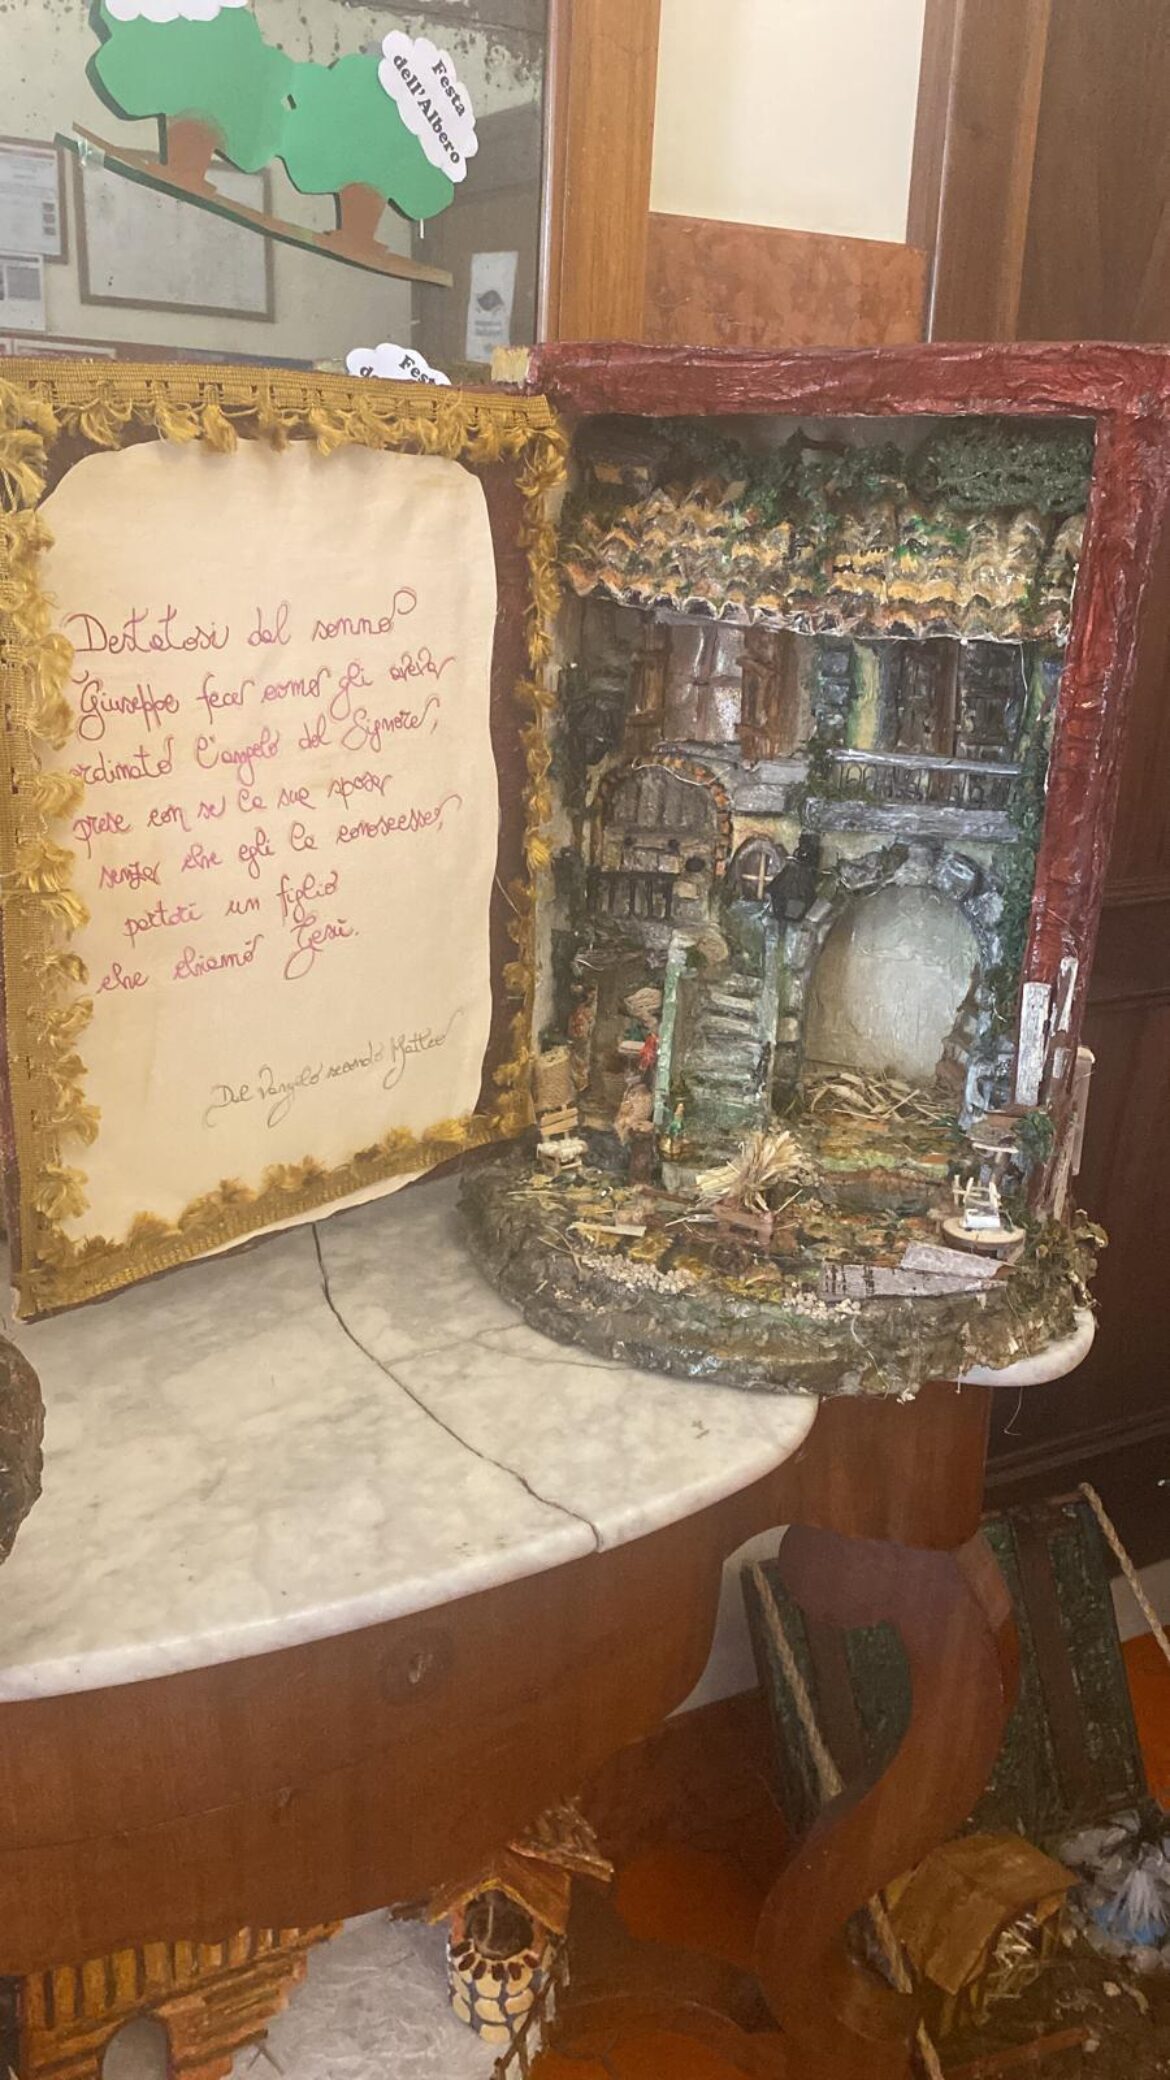 Festa
dell'Albero
Fest
Destatosi dal sonno
Giuseppe fece come gli aveva
ordinato l'angelo del Signore,
prese con se la sua sposa
senza che egli la conoscesse,
partorì un figlio
che chiamò Gesù.
Dal Vangelo secondo Matteo